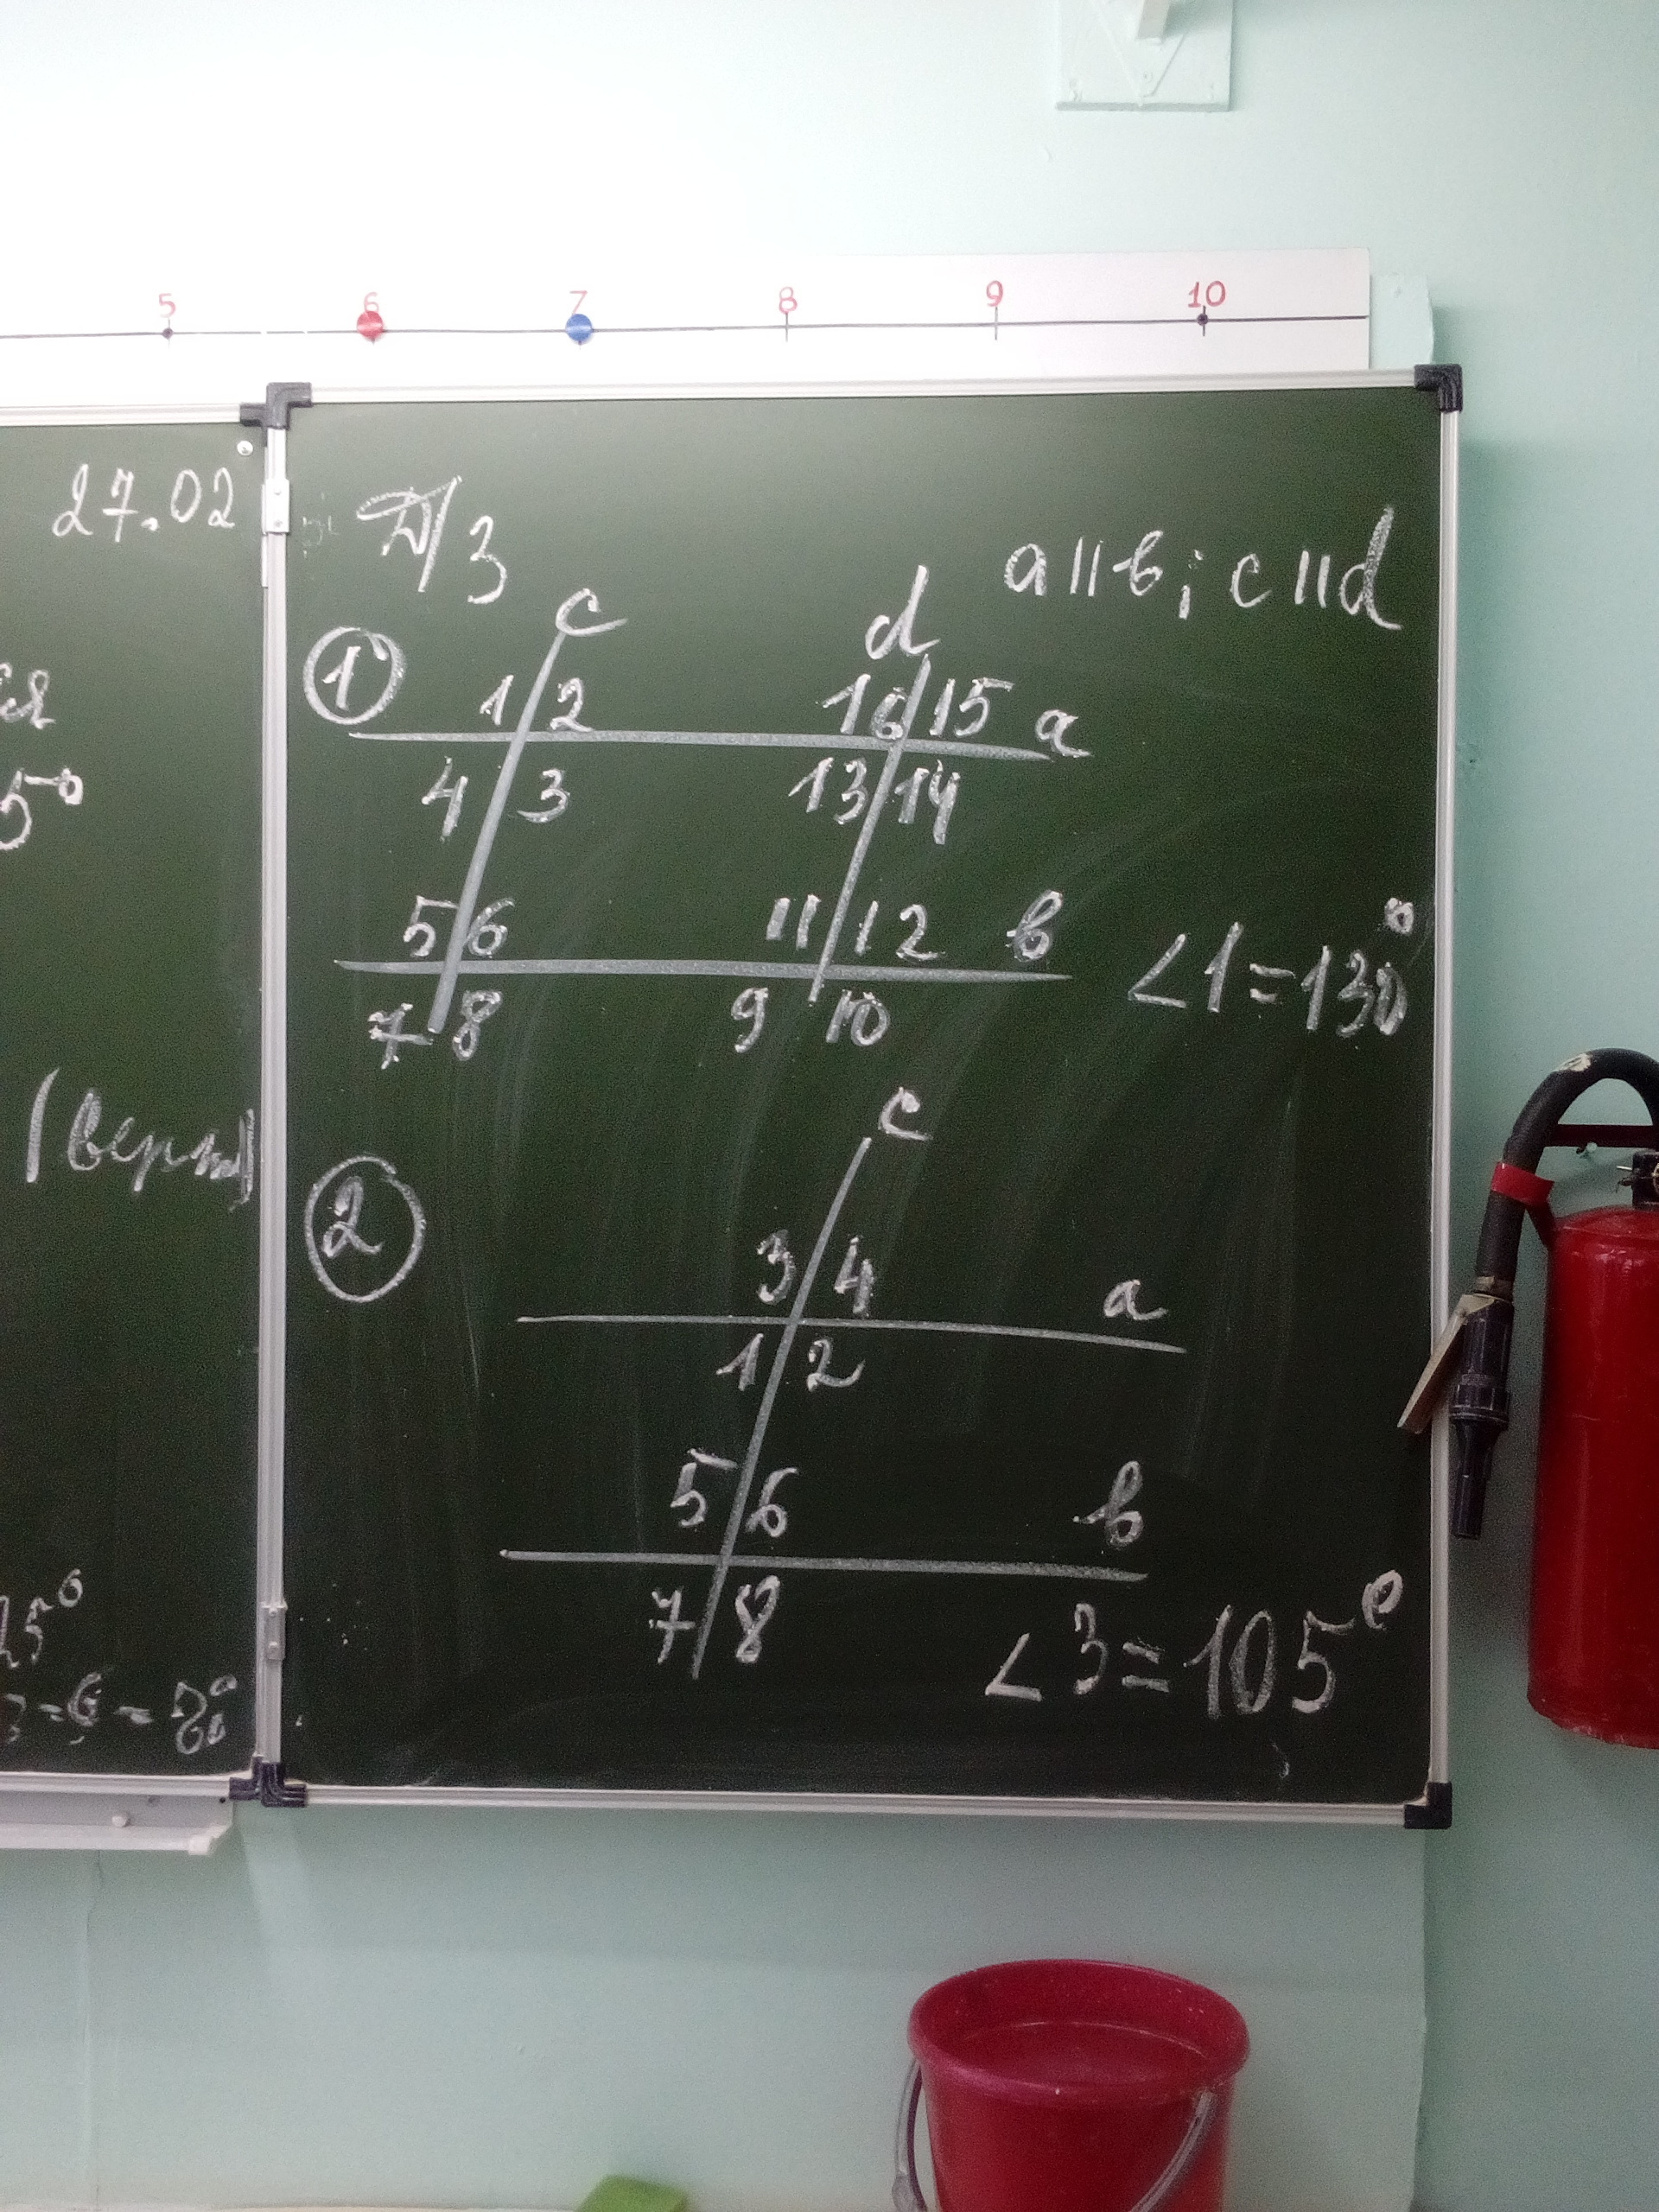 5 6 7 8 9 10
27.02
5°
(верт)
25°
Д/З
a∥b; c∥d
①
c
d
1 2 16 15 a
4 3 13 14
5 6 11 12 b
7 8 9 10
∠1=130°
②
c
3 4 a
1 2
5 6 b
7 8
∠3=105°